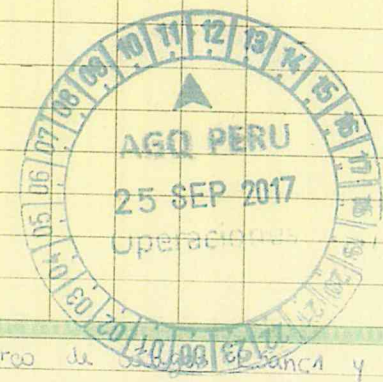 01 02 03 04 05 06 07 08 09 10 11 12 13 14 15 16 17 18 19 20 21 22 23 00
AGQ PERU
25 SEP 2017
Operaciones
de y